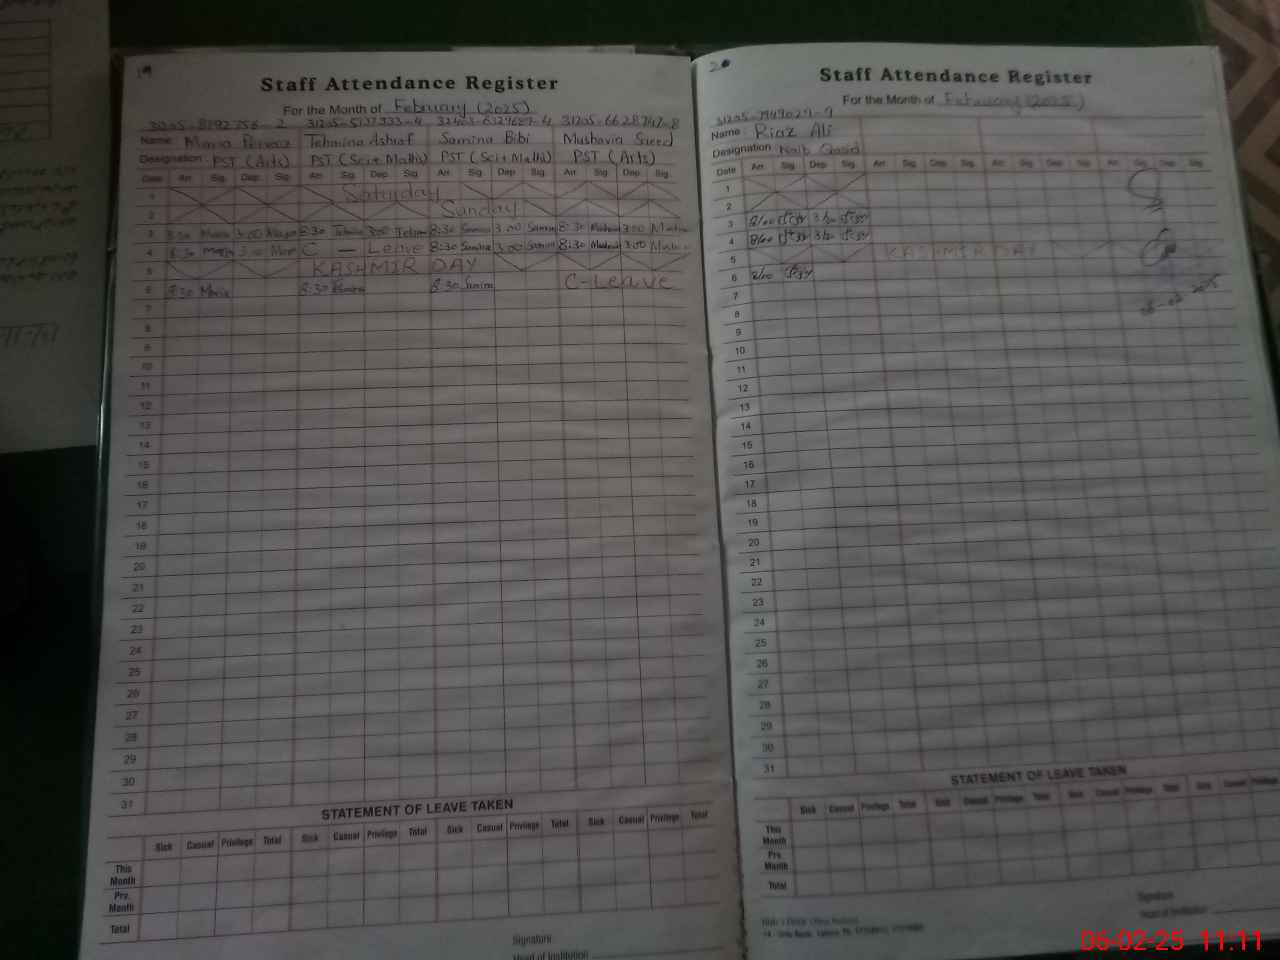 19
Staff Attendance Register
For the Month of February (2025)
31205-6628747-8
Name: Maria Tehmina Ashraf Samina Bibi Mushavia Saeed
Designation: PST (Arts) PST (Sci & Math) PST (Sci & Math) PST (Arts)
Date Arr. Sig. Dep. Sig. Arr. Sig. Dep. Sig. Arr. Sig. Dep. Sig. Arr. Sig. Dep. Sig.
1 Saturday
2 Sunday
3 8:30 Maria 3:00 8:30 3:00 8:30 Samina 3:00 Samina 8:30 3:00
4 8:30 Maria 3:00 C - Leave 8:30 Samina 3:00 Samina 8:30 3:00
5 KASHMIR DAY
6 8:30 Maria 8:30 8:30 Samina C-Leave
7
8
9
10
11
12
13
14
15
16
17
18
19
20
21
22
23
24
25
26
27
28
29
30
31
STATEMENT OF LEAVE TAKEN
Sick Casual Privilege Total Sick Casual Privilege Total Sick Casual Privilege Total Sick Casual Privilege Total
This Month
Prv. Month
Total
Signature
Head of Institution
20
Staff Attendance Register
For the Month of February (2025)
Name: Riaz Ali
Designation Naib Qasid
Date Arr. Sig. Dep. Sig. Arr. Sig. Dep. Sig. Arr. Sig. Dep. Sig. Arr. Sig. Dep. Sig.
1
2
3 8/00 3/00
4 8/00 3/00
5 KASHMIR DAY
6 8/00
7
8
9
10
11
12
13
14
15
16
17
18
19
20
21
22
23
24
25
26
27
28
29
30
31
STATEMENT OF LEAVE TAKEN
Sick Casual Privilege Total Sick Casual Privilege Total Sick Casual Privilege Total Sick Casual Privilege
This Month
Prv. Month
Total
Signature
Head of Institution
06-02-25 11:11